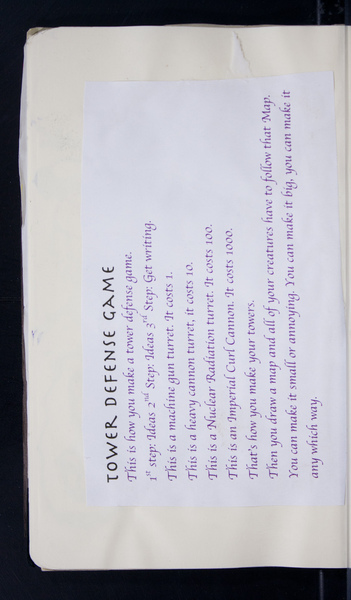 TOWER DEFENSE GAME
This is how you make a tower defense game.
1st step: Ideas 2nd Step: Ideas 3rd Step: Get writing.
This is a machine gun turret. It costs 1.
This is a heavy cannon turret, it costs 10.
This is a Nuclear Radiation turret. It costs 100.
This is an Imperial Curl Cannon. It costs 1000.
That's how you make your towers.
Then you draw a map and all of your creatures have to follow that Map.
You can make it small or annoying. You can make it big, you can make it
any which way.